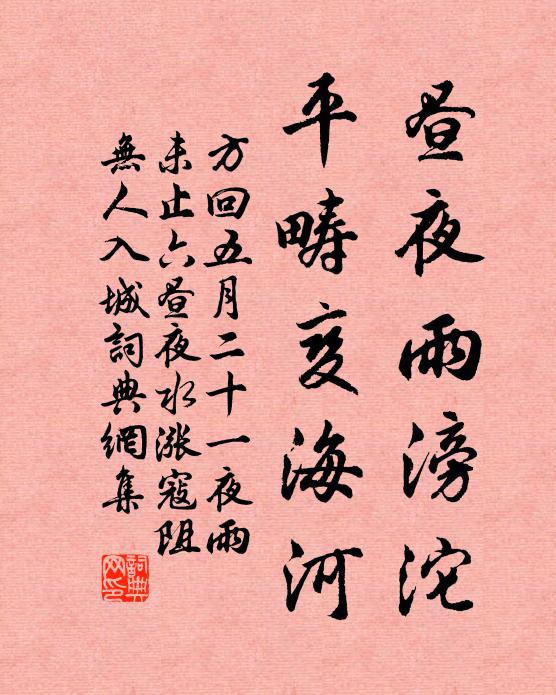 昼夜雨滂沱
平畴变海河
方回五月二十一夜雨
未止六昼夜水涨寇阻
無人入城詞典網集
詞典
网印